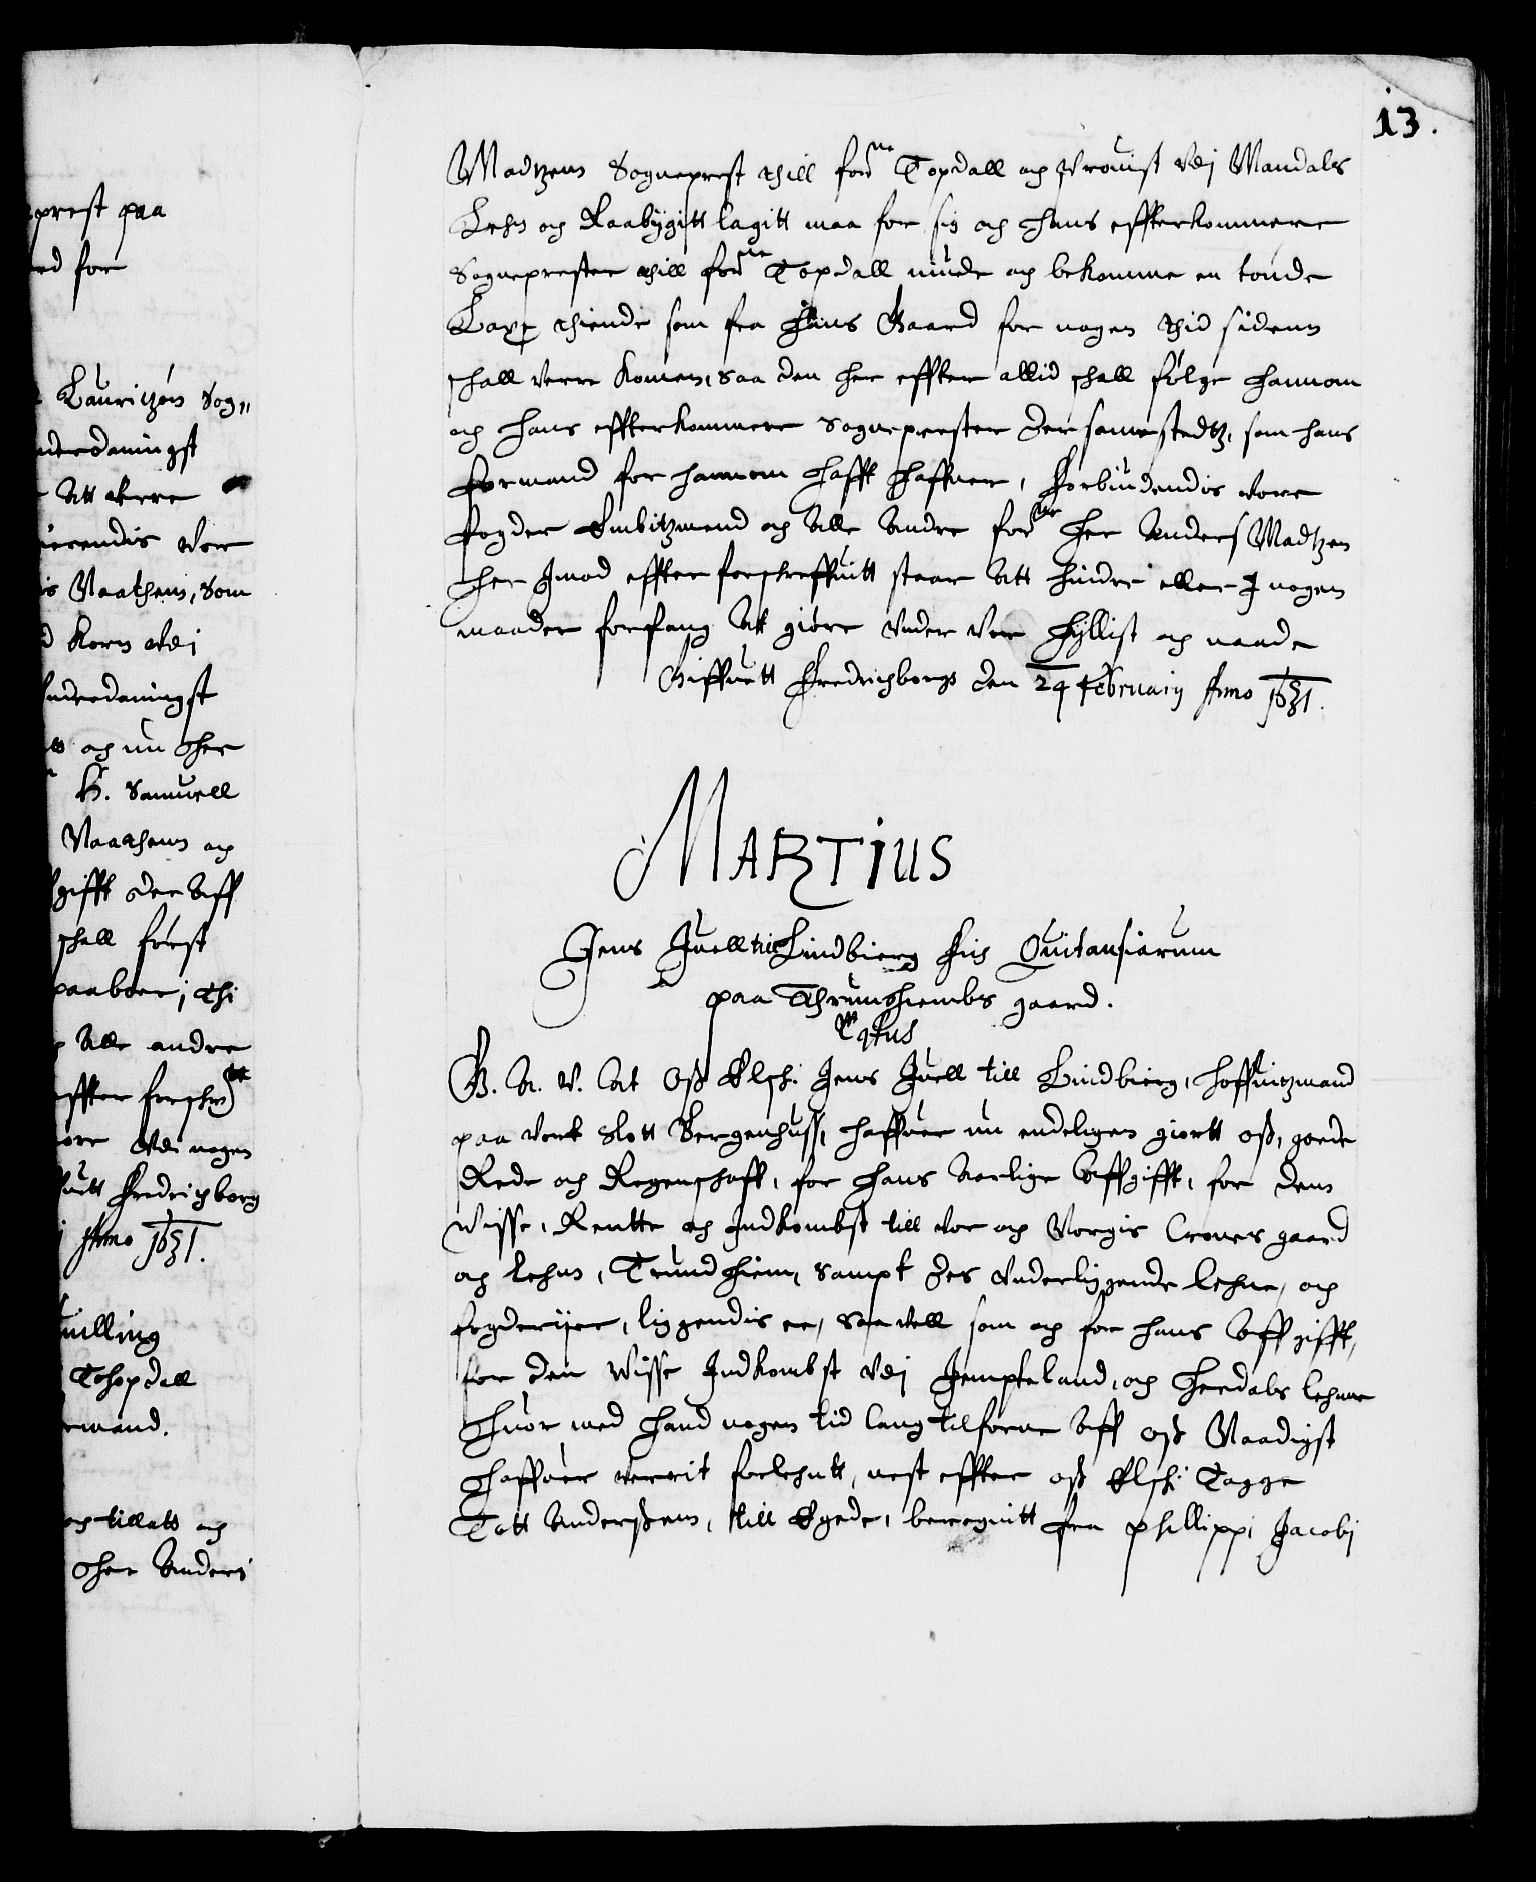 13.
prest paa
ed for
Lauritzøn Sog„
nderdanigst
Att were
ierendis Vor
is Naathens, Som
d Korn vdi
Vnderdanigst
och nu Her
H. Samuell
Naathens och
gifft der Aff
schall først
paaboer, Thi
Alle andre
effter forschr tt
ore Vdi nogen
uitt Fredrichborg
Anno 1631.
uilling
Tohopdall
rmand.
och tillatt och
Her Anders
Madtzenn Sogneprest thill forne Topdall och Prouist vdj Mandals
Lehn och Raabygitt lagitt maa for sig och hans effterkommere
Sogneprester thill forne Topdall niude och bekomme en tønde
Laxe thiende som fra hans Gaard for nogen thid sidenn
schall verre Komen, saa den her effter altid schall følge hannom
och hans effterkommere Sogneprester der samestedtz, som hans
Formand for hannom hafft haffuer, Forbiudendis vore
fogder Embitzmend och Alle Andre forne Her Anders Madtzen
her Imod effter forschreffuitt staar Att hindre eller I nogen
maader forfang Att giøre Vnder Vor Hyllist och naade
Giffuett Fredrichborg den 24 Februarij Anno 1631.
MARTIUS
Jens Juell till Lindbierg fik Quitansiarum
paa Thrundhiembs gaard.
C. 4tus
G. A. V. At Oss Elsch. Jens Juell till Lindbierg, hoffuitzmand
paa vort Slott Bergenhuss, haffuer nu endeligen giortt oss, goede
Rede och Regenschaff, for hans Aarlige Affgifft, for denn
Wisse, Rentte och Indkombst till vor och Norgis Crones gaard
och Lehnn, Trundhiem, Sampt des Vnderliggende lehne, och
fogderijer, liggendis er, Saa vell som och for hans Affgifft,
for den Wisse Indkombst Vdj Jempteland, och Herdals lehne
Huor med hand nogen tid lang tilforne Aff oss Naadigst
haffuer verrit forlehntt, nest effter oss Elsch. Tagge
Tott Anderssenn, till Egede, beregnitt fra Phillippi Jacobj